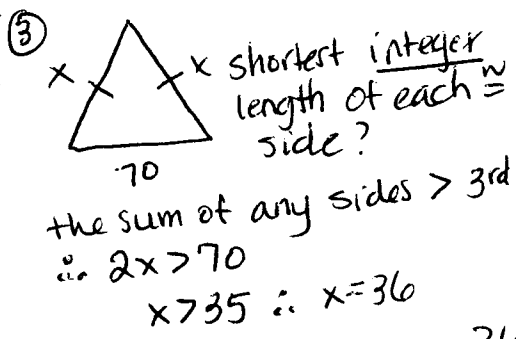 ③
x x shortest integer
length of each ≅
side?
70
the sum of any sides > 3rd
∴ 2x > 70
x > 35 ∴ x = 36